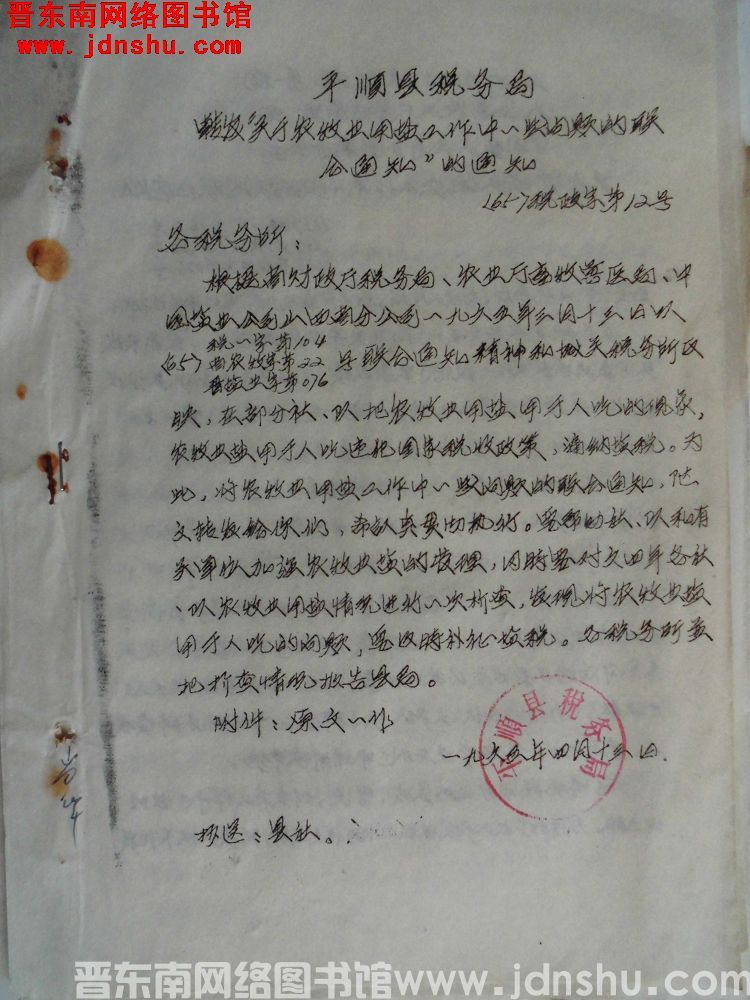 晋东南网络图书馆
www.jdnshu.com
平顺县税务局
转发"关于农牧业用盐工作中一些问题的联
合通知"的通知
(65)税政字第12号
各税务所：
根据省财政厅税务局、农业厅畜牧兽医局、中
国盐业公司山西省分公司一九六五年三月十三日以
税一字第104
(65)西农牧字第22号联合通知精神和城关税务所反
晋盐业字第076
映，在部分社、队把农牧业用盐用于人吃的现象，
农牧业盐用于人吃违犯国家税收政策，漏纳盐税。为
此，将农牧业用盐工作中一些问题的联合通知，随
文转发给你们，希认真贯彻执行。要帮助社、队和有
关单位加强农牧业盐的管理，同时要对六四年各社
、队农牧业用盐情况进行一次检查，发现将农牧业盐
用于人吃的问题，要及时补征盐税。各税务所并
把检查情况报告县局。
附件：原文一份
一九六五年四月十三日
平顺县税务局
抄送：县社。
晋东南网络图书馆www.jdnshu.com